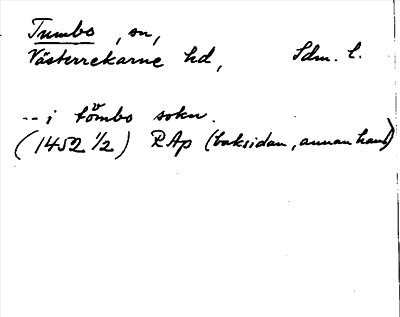 Tumbo, sn,
Västerrekarne hd, Sdm. l.
-- i tömbo sokn.
(1452 1/2) RAp (baksidan, annan hand)